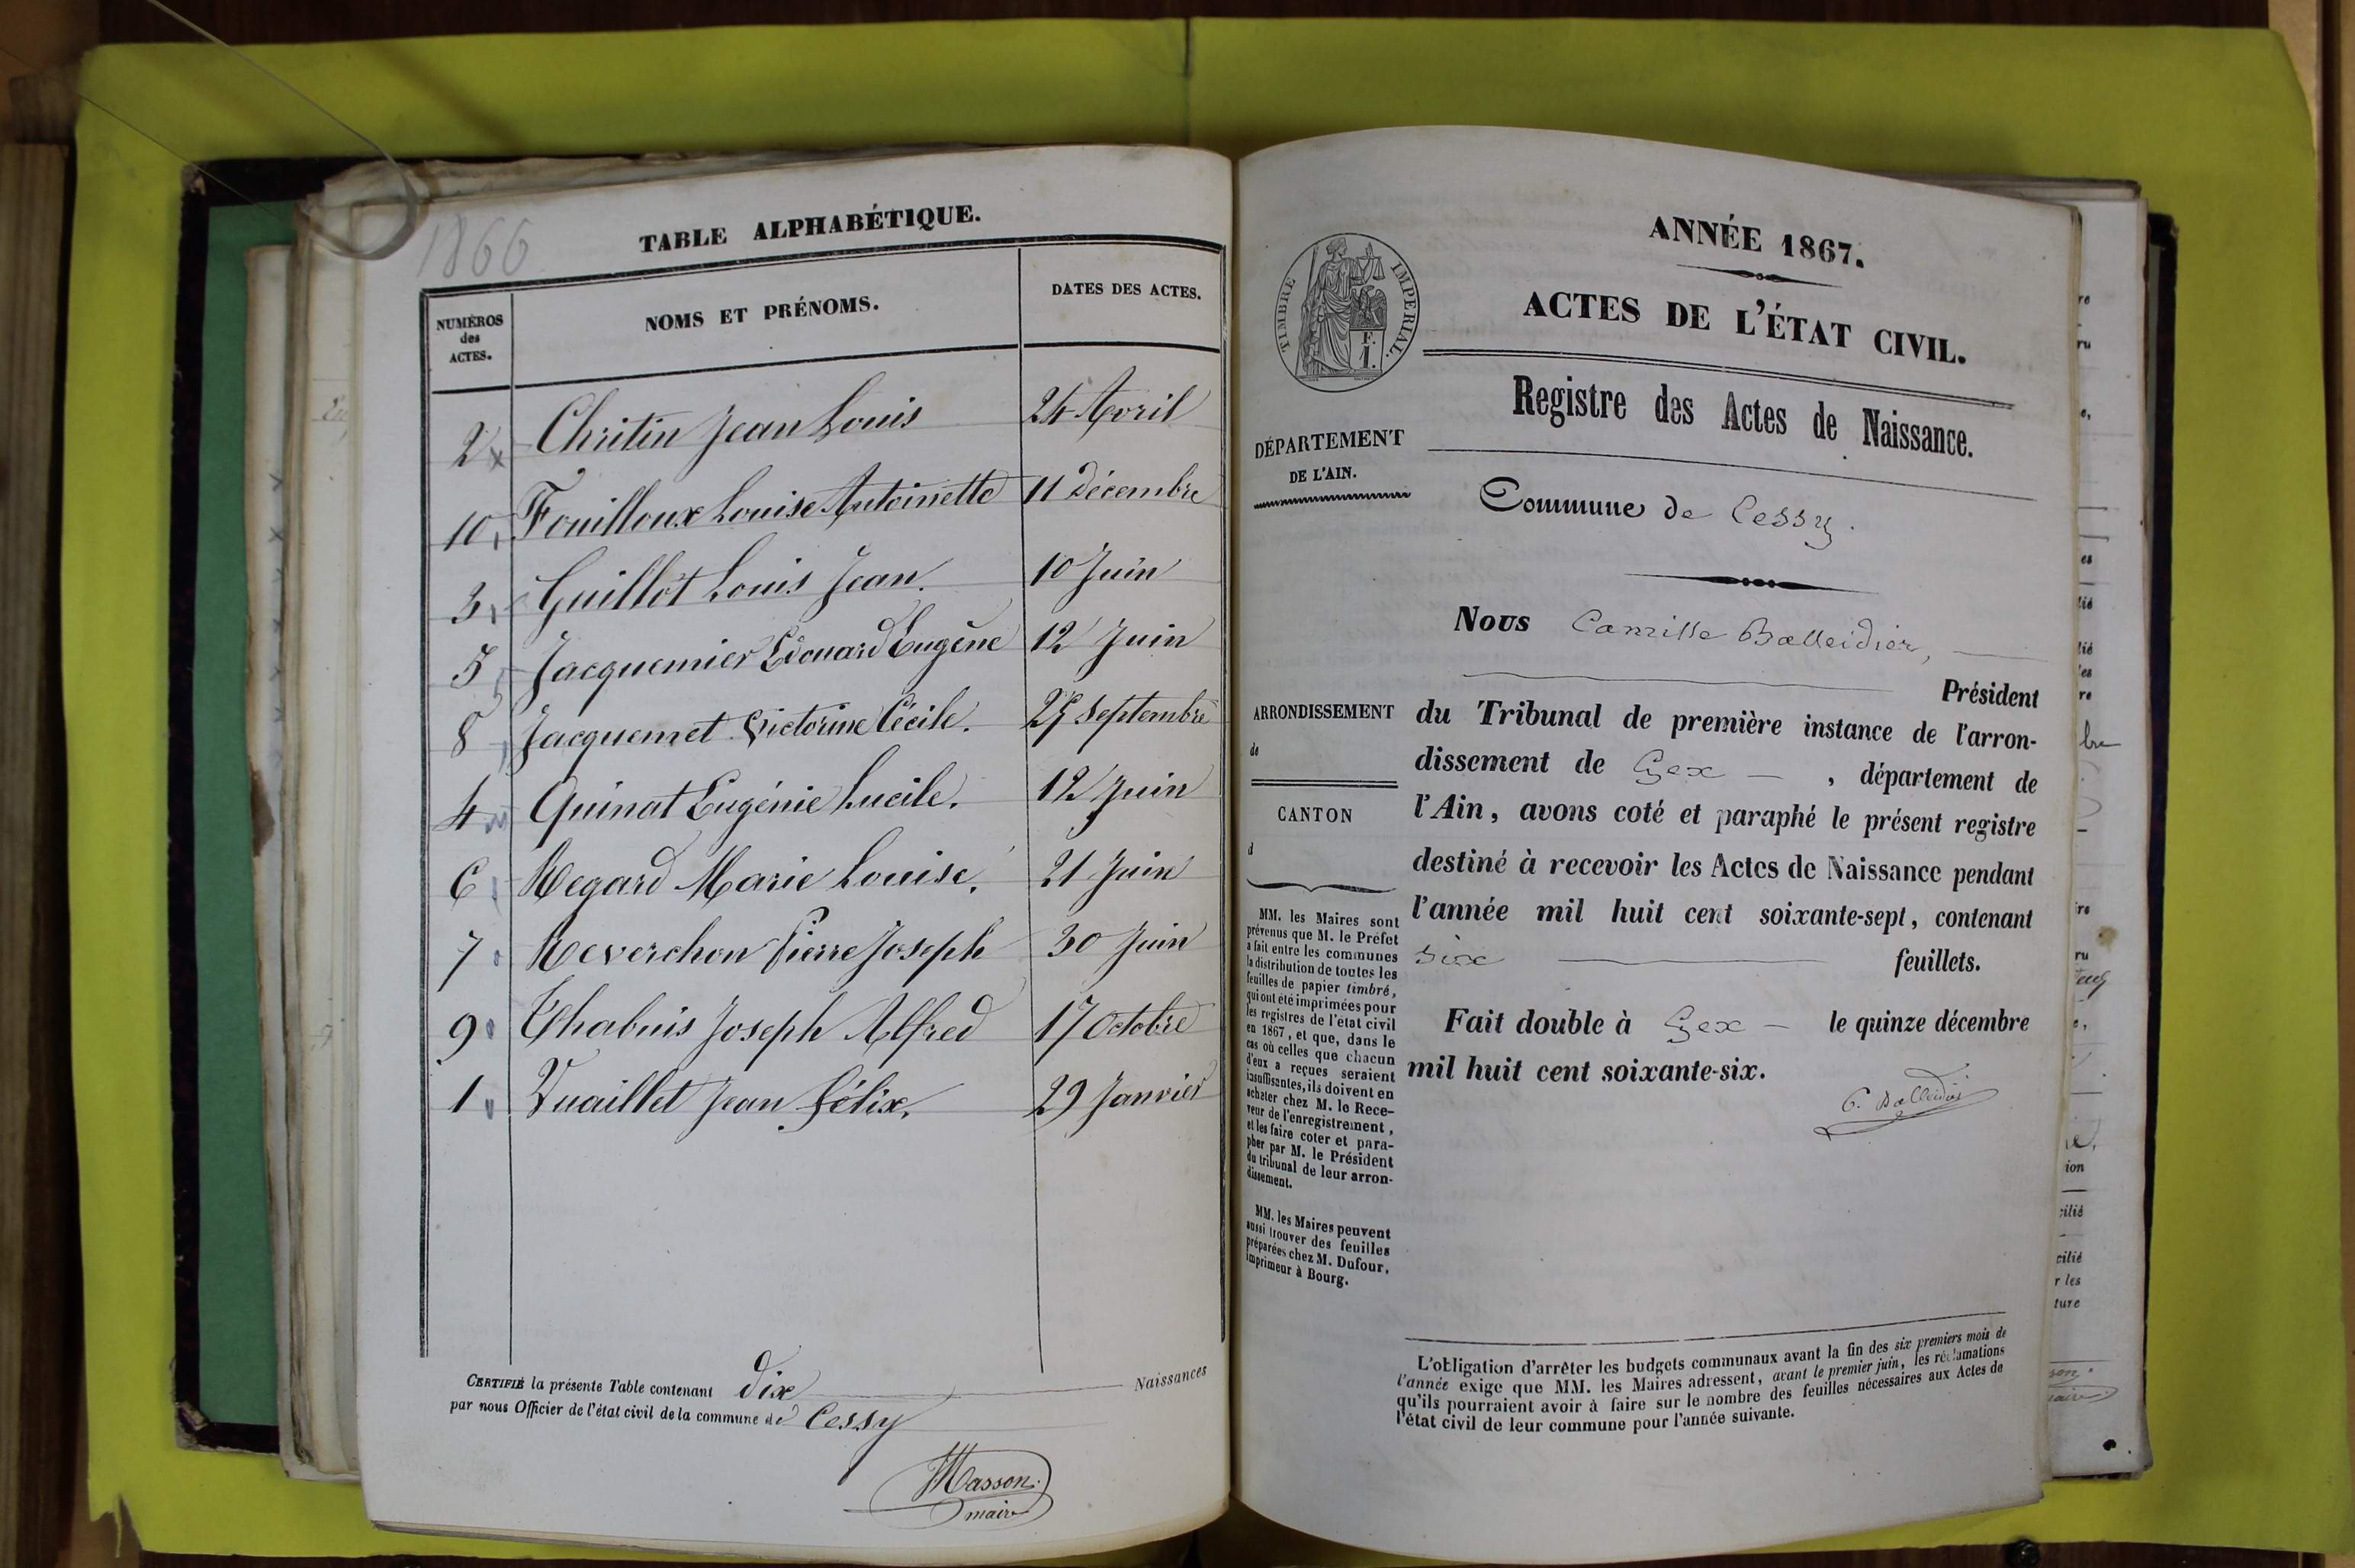 1866
TABLE ALPHABÉTIQUE.
NUMÉROS
des
ACTES.
NOMS ET PRÉNOMS.
DATES DES ACTES.
2 Chritin Jean Louis 24 Avril
10 Fouilloux Louise Antoinette 11 Décembre
3 Guillot Louis Jean. 10 Juin
5 Jacquemier Edouard Eugène 12 Juin
8 Jacquemet Victorine Cécile. Septembre
4 Quinat Eugénie Lucile. 12 Juin
6 Regard Marie Louise. 21 Juin
7 Reverchon Pierre Joseph 30 Juin
9 Chabuis Joseph Alfred 17 Octobre
1 Vuaillet Jean Félix. 29 Janvier
CERTIFIÉ la présente Table contenant dix Naissances
par nous Officier de l'état civil de la commune de Cessy
Masson
maire
ANNÉE 1867.
TIMBRE IMPERIAL.
F.
1.
ACTES DE L'ÉTAT CIVIL.
Registre des Actes de Naissance.
DÉPARTEMENT
DE L'AIN.
Commune de Cessy.
ARRONDISSEMENT
de
CANTON
d
Nous Camille Balleidier,
Président
du Tribunal de première instance de l'arron-
dissement de Gex, département de
l'Ain, avons coté et paraphé le présent registre
destiné à recevoir les Actes de Naissance pendant
l'année mil huit cent soixante-sept, contenant
six feuillets.
Fait double à Gex le quinze décembre
mil huit cent soixante-six.
C. Balleidier
MM. les Maires sont
prévenus que M. le Préfet
a fait entre les communes
la distribution de toutes les
feuilles de papier timbré,
qui ont été imprimées pour
les registres de l'état civil
en 1867, et que, dans le
cas où celles que chacun
d'eux a reçues seraient
insuffisantes, ils doivent en
acheter chez M. le Rece-
veur de l'enregistrement,
et les faire coter et para-
pher par M. le Président
du tribunal de leur arron-
dissement.
MM. les Maires peuvent
aussi trouver des feuilles
préparées chez M. Dufour,
imprimeur à Bourg.
L'obligation d'arrêter les budgets communaux avant la fin des six premiers mois de
l'année exige que MM. les Maires adressent, avant le premier juin, les réclamations
qu'ils pourraient avoir à faire sur le nombre des feuilles nécessaires aux Actes de
l'état civil de leur commune pour l'année suivante.